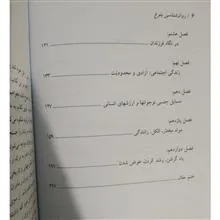 ۶ / روان‌شناسی بلوغ
فصل هشتم:
در نگاه فرزندان ۱۲۱
فصل نهم:
زندگی اجتماعی: آزادی و محدودیت ۱۳۳
فصل دهم:
مسایل جنسی نوجوانها و ارزشهای انسانی ۱۴۷
فصل یازدهم:
مواد مخدر، الکل، رانندگی ۱۵۹
فصل دوازدهم:
یاد گرفتن، رشد کردن، عوض شدن